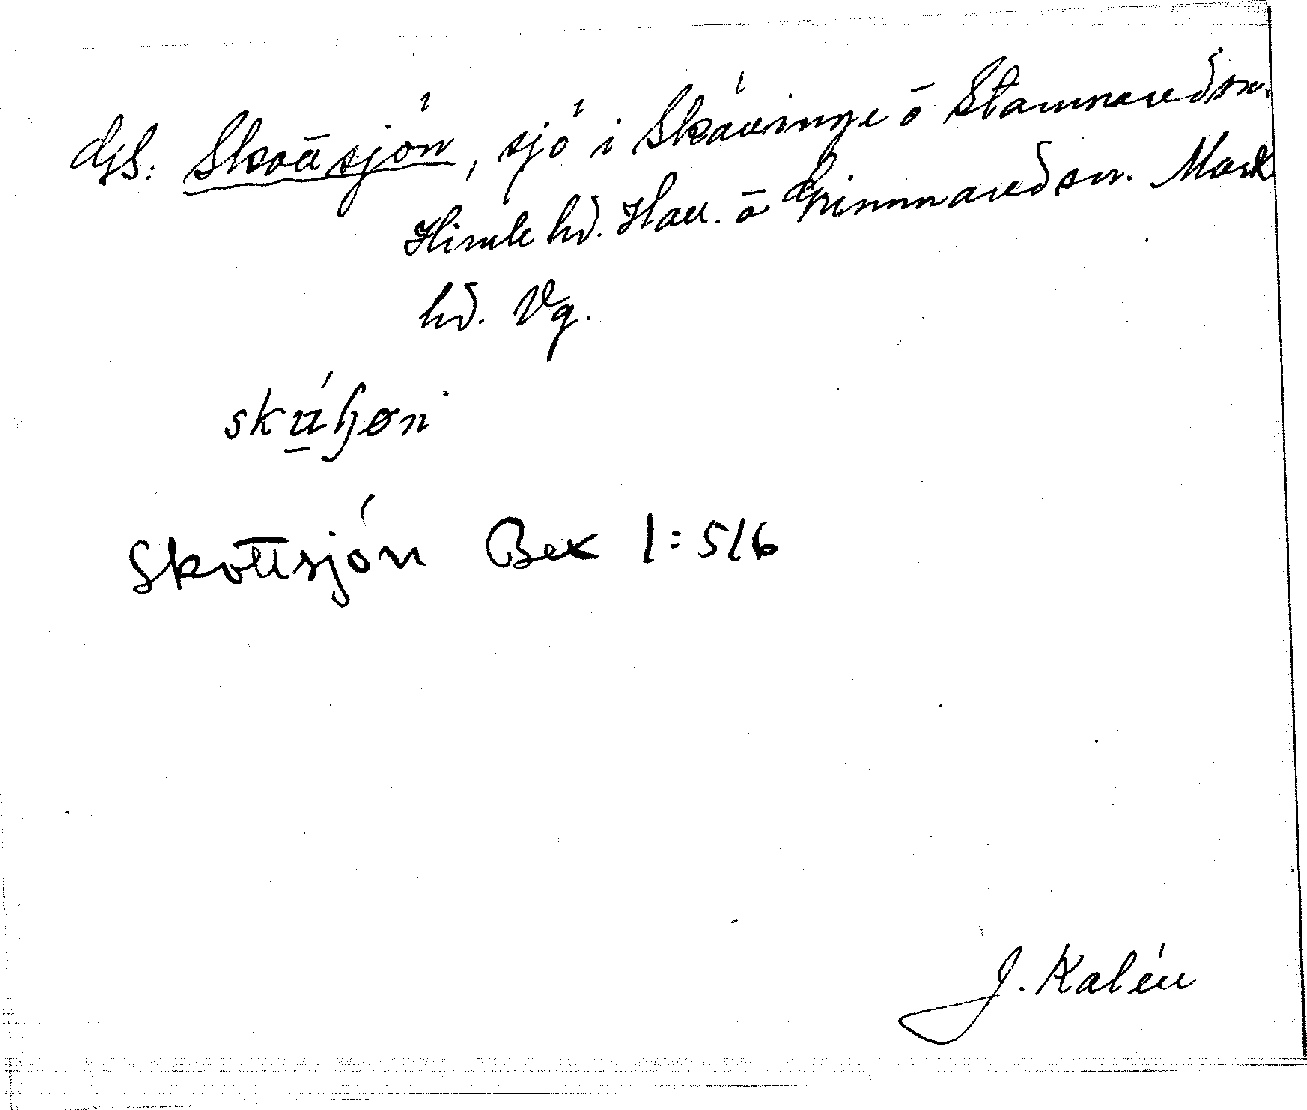 GS: Skottsjön, sjö i Skällinge o Stamnared snr.
Himle hd. Hall. o Grimmared sn. Mark
hd. Vg.
Skottsjön Bex 1:516
J. Kalén